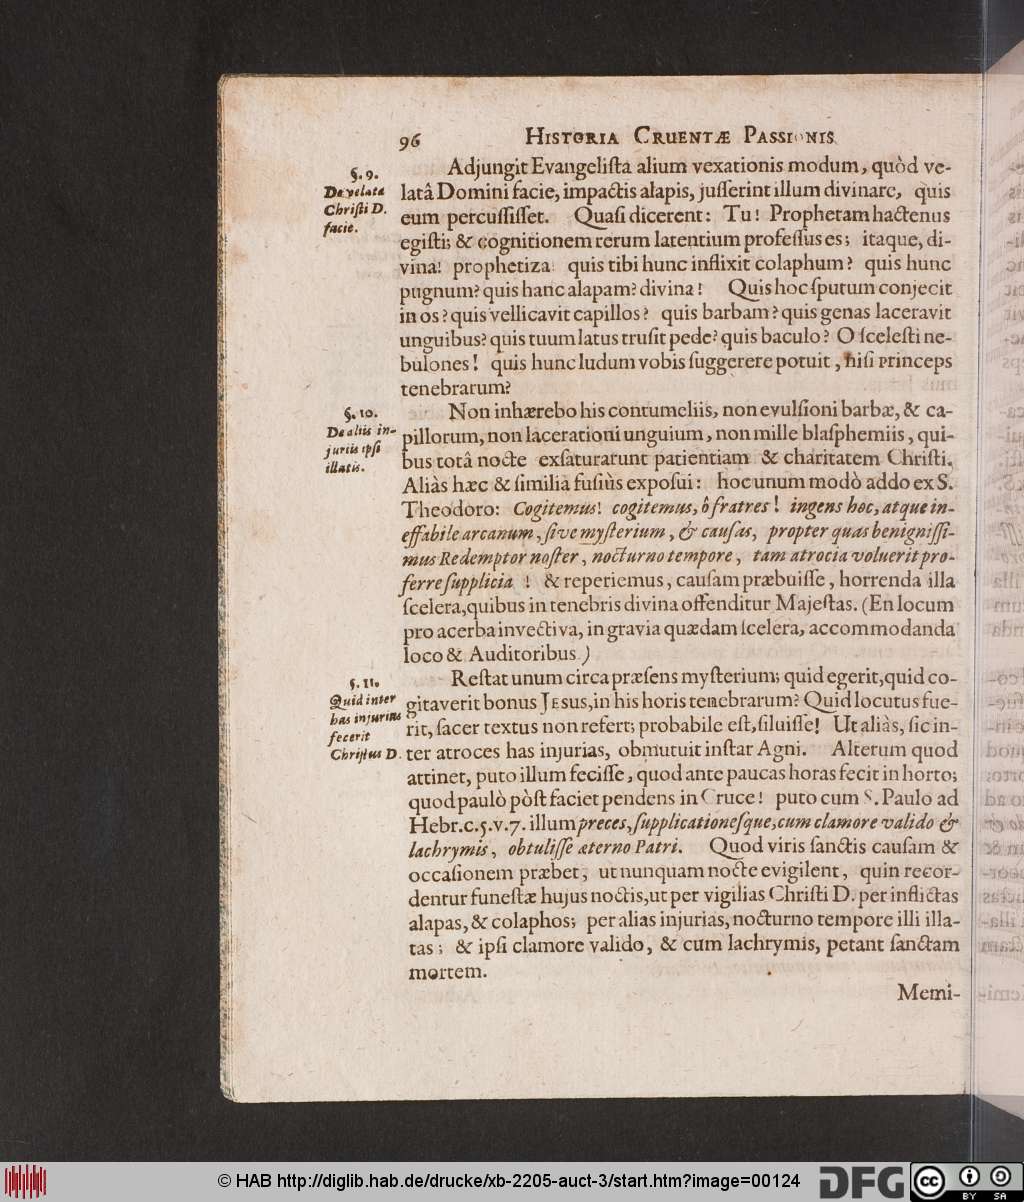 96 HISTORIA CRUENTÆ PASSIONIS
§. 9.
De velata
Christi D.
facie.
Adjungit Evangeliſta alium vexationis modum, quòd ve-
latâ Domini facie, impactis alapis, juſſerint illum divinare, quis
eum percuſſiſſet. Quaſi dicerent: Tu! Prophetam hactenus
egiſti; & cognitionem rerum latentium profeſſus es; itaque, di-
vina! prophetiza quis tibi hunc inflixit colaphum? quis hunc
pugnum? quis hanc alapam? divina! Quis hoc ſputum conjecit
in os? quis vellicavit capillos? quis barbam? quis genas laceravit
unguibus? quis tuum latus truſit pede? quis baculo? O ſceleſti ne-
bulones! quis hunc ludum vobis ſuggerere potuit, niſi Princeps
tenebrarum?
§. 10.
De aliis in-
juriis ipſi
illatis.
Non inhærebo his contumeliis, non evulſioni barbæ, & ca-
pillorum, non lacerationi unguium, non mille blaſphemiis, qui-
bus totâ nocte exſaturarunt patientiam & charitatem Chriſti.
Aliàs hæc & ſimilia fuſiùs expoſui: hoc unum modò addo ex S.
Theodoro: Cogitemus! cogitemus, ô fratres! ingens hoc, atque in-
effabile arcanum, ſive myſterium, & cauſas, propter quas benigniſſi-
mus Redemptor noſter, nocturno tempore, tam atrocia voluerit pro-
ferre ſupplicia! & reperiemus, cauſam præbuiſſe, horrenda illa
ſcelera, quibus in tenebris divina offenditur Majeſtas. (En locum
pro acerba invectiva, in gravia quædam ſcelera, accommodanda
loco & Auditoribus.)
§. 11.
Quid inter
has injurias
fecerit
Chriſtus D.
Reſtat unum circa præſens myſterium; quid egerit, quid co-
gitaverit bonus JESUS, in his horis tenebrarum? Quid locutus fue-
rit, ſacer textus non refert; probabile eſt, ſiluiſſe! Ut aliàs, ſic in-
ter atroces has injurias, obmutuit inſtar Agni. Alterum quod
attinet, puto illum feciſſe, quod ante paucas horas fecit in horto;
quod paulò pòſt faciet pendens in Cruce! puto cum S. Paulo ad
Hebr. c. 5. v. 7. illum preces, ſupplicationeſque, cum clamore valido &
lachrymis, obtuliſſe æterno Patri. Quod viris ſanctis cauſam &
occaſionem præbet, ut nunquam nocte evigilent, quin recor-
dentur funeſtæ hujus noctis, ut per vigilias Chriſti D. per inflictas
alapas, & colaphos; per alias injurias, nocturno tempore illi illa-
tas; & ipſi clamore valido, & cum lachrymis, petant ſanctam
mortem.
Memi-
© HAB http://diglib.hab.de/drucke/xb-2205-auct-3/start.htm?image=00124
DFG
cc
BY SA